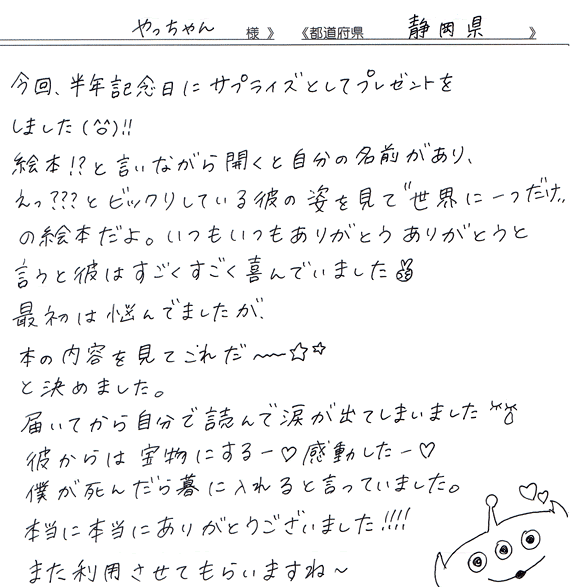 やっちゃん 様 》 《都道府県 静岡県 》
今回、半年記念日にサプライズとしてプレゼントを
しました(^^)!!
絵本!?と言いながら開くと自分の名前があり、
えっ???とビックリしている彼の姿を見て"世界に一つだけ"
の絵本だよ。いつもいつもありがとうありがとうと
言うと彼はすごくすごく喜んでいました✌
最初は悩んでましたが、
本の内容を見てこれだ〜〜☆☆
と決めました。
届いてから自分で読んで涙が出てしまいました
彼からは宝物にするー♡感動したー♡
僕が死んだら暮に入れると言っていました。
本当に本当にありがとうございました!!!!
また利用させてもらいますね〜